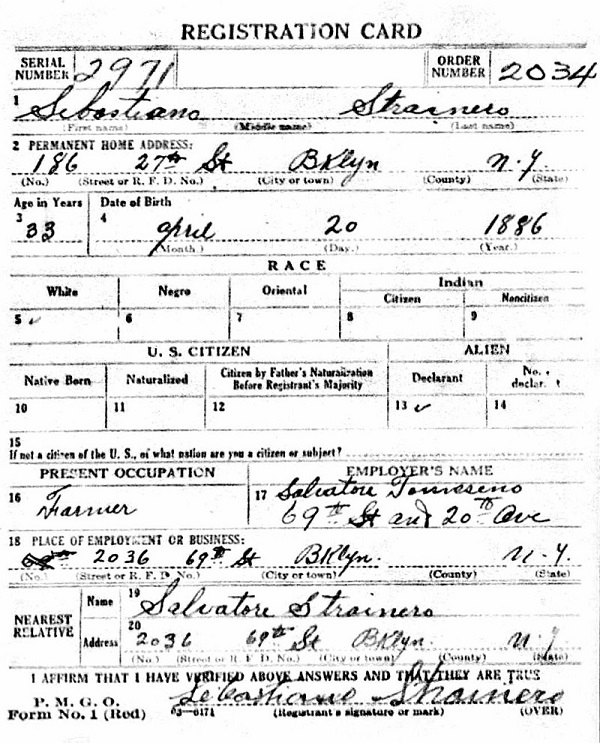 REGISTRATION CARD
SERIAL NUMBER 2971 ORDER NUMBER 2034
1 Sebastiano Strainero
(First name) (Middle name) (Last name)
2 PERMANENT HOME ADDRESS:
186 27th St BKlyn N.Y.
(No.) (Street or R. F. D. No.) (City or town) (County) (State)
Age in Years Date of Birth
3 33 4 April 20 1886
(Month.) (Day.) (Year.)
RACE
White Negro Oriental Indian
Citizen Noncitizen
5 ✓ 6 7 8 9
U. S. CITIZEN ALIEN
Native Born Naturalized Citizen by Father's Naturalization Before Registrant's Majority Declarant
10 11 12 13 ✓ 14
15
If not a citizen of the U. S., of what nation are you a citizen or subject?
PRESENT OCCUPATION EMPLOYER'S NAME
16 Farmer 17 Salvatore
69th St and 20th Ave
18 PLACE OF EMPLOYMENT OR BUSINESS:
2036 69th St BKlyn. N.Y.
(No.) (Street or R. F. D. No.) (City or town) (County) (State)
NEAREST RELATIVE Name 19 Salvatore Strainero
Address 20 2036 69th St BKlyn N.Y.
(No.) (Street or R. F. D. No.) (City or town) (County) (State)
I AFFIRM THAT I HAVE VERIFIED ABOVE ANSWERS AND THAT THEY ARE TRUE
P. M. G. O. Sebastiano Strainero
Form No. 1 (Red) 03—6171 (Registrant's signature or mark) (OVER)